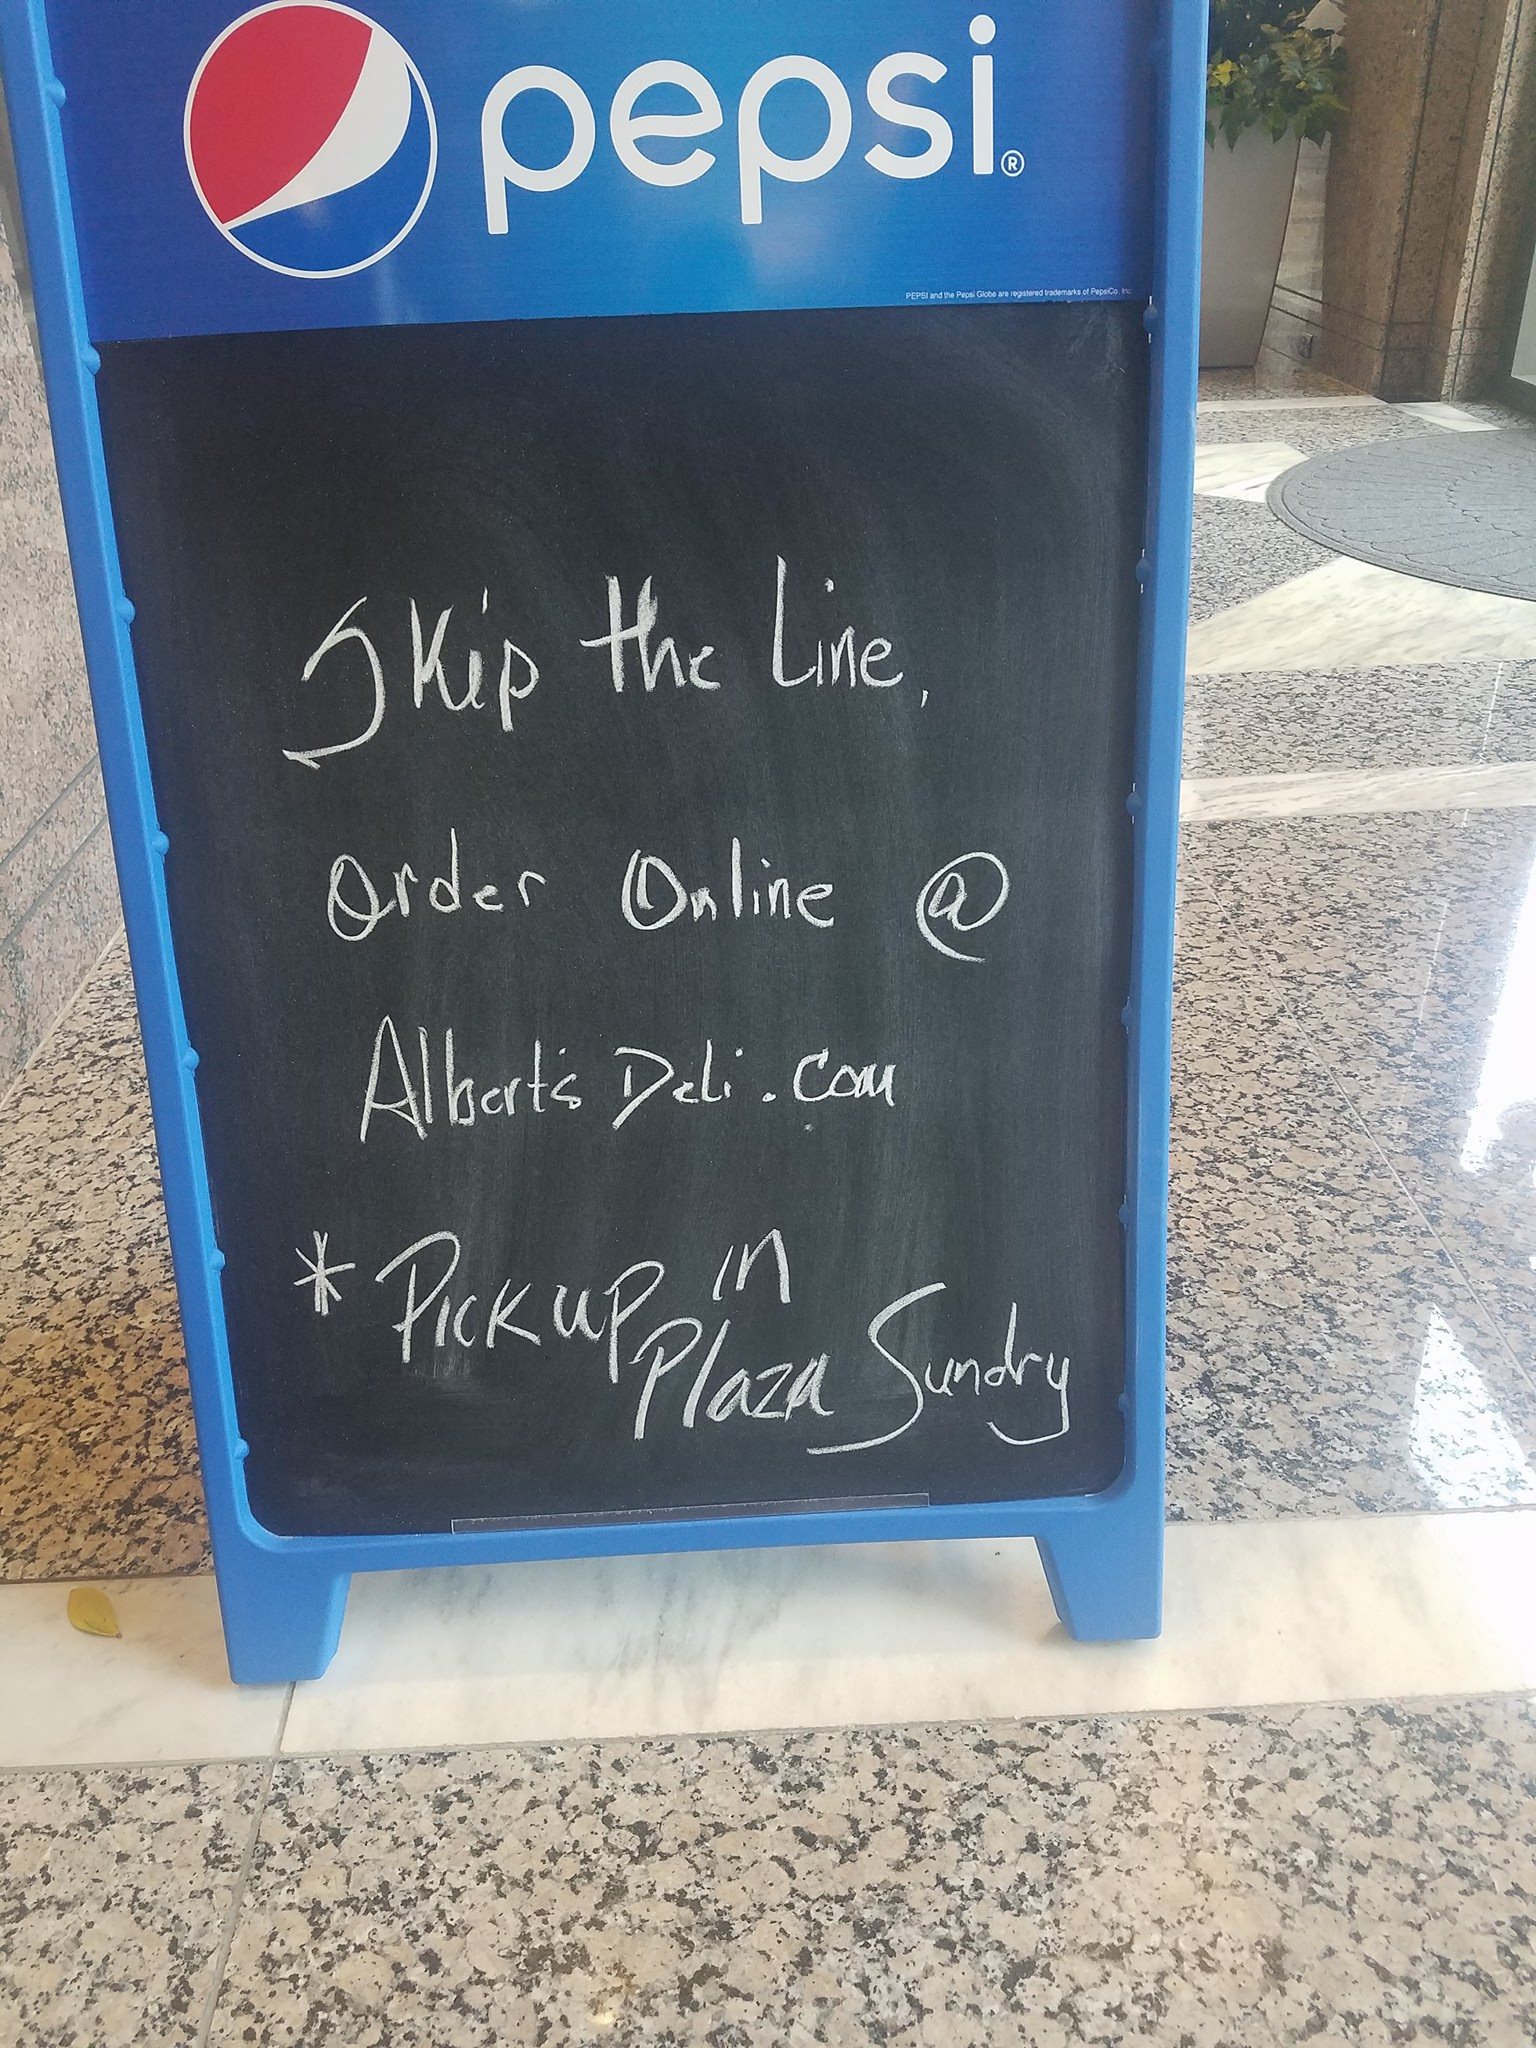 pepsi®
PEPSI and the Pepsi Globe are registered trademarks of PepsiCo, Inc.
Skip the Line,
Order Online @
Albert's Deli.com
* Pick up in
Plaza Sundry